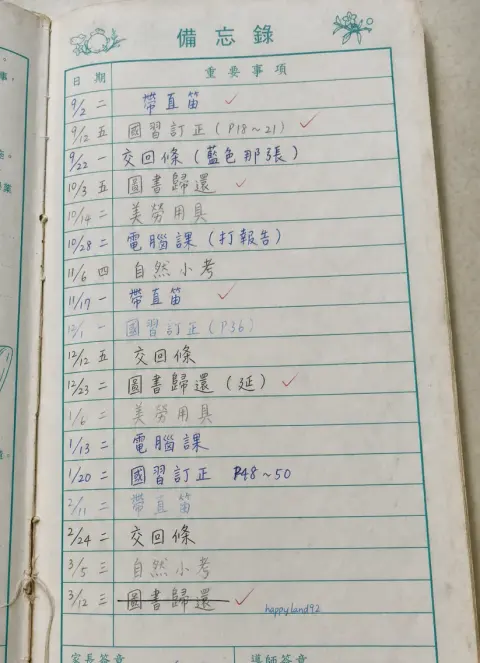 備忘錄
日期 重要事項
9/2 二 帶直笛 ✓
9/12 五 國習訂正(P18~21) ✓
9/22 一 交回條(藍色那張)
10/3 五 圖書歸還 ✓
10/14 二 美勞用具
10/28 二 電腦課(打報告)
11/6 四 自然小考
11/17 一 帶直笛 ✓
12/1 一 國習訂正(P36)
12/12 五 交回條
12/23 二 圖書歸還(延) ✓
1/6 二 美勞用具
1/13 二 電腦課
1/20 二 國習訂正 P48~50
2/11 二 帶直笛
2/24 二 交回條
3/5 三 自然小考
3/12 三 圖書歸還 ✓
happyland92
家長簽章 導師簽章